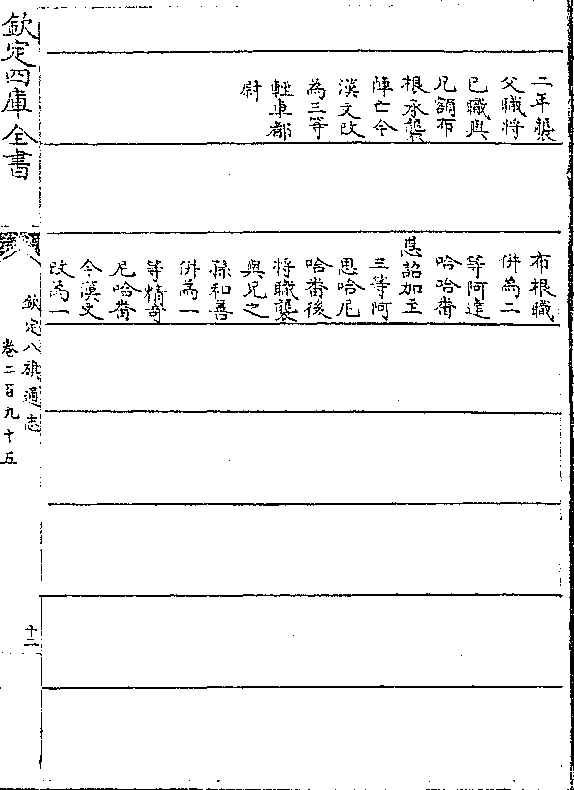 二年襲
父職将
已職與
兄額布
根承襲
陣亡今
漢文改
為三等
輕車都
尉
布根職
併為二
等阿達
哈哈番
恩詔加至
三等阿
思哈尼
哈番後
将職襲
與兄之
孫和善
併為一
等精奇
尼哈番
今漢文
改為一
欽定四庫全書
欽定八旗通志
卷二百九十五
十二